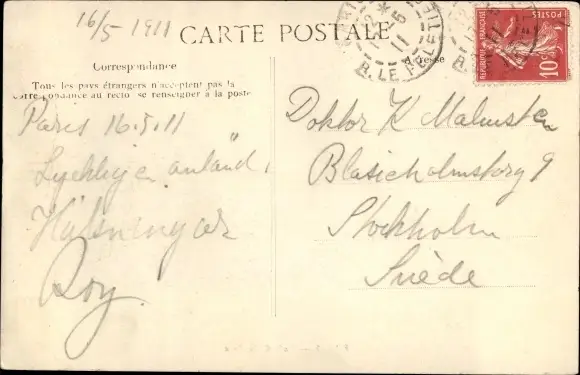 16/5 1911
CARTE POSTALE
Correspondance
Tous les pays étrangers n'acceptent pas la
correspondance au recto se renseigner à la poste
Paris 16.5.11
Lyckligen anländ,
Hälsningar
Roy.
Doktor K Malmsten
Blasieholmstorg 9
Stockholm
Suède
R. LE PELETIER
RÉPUBLIQUE FRANÇAISE
POSTES
10c